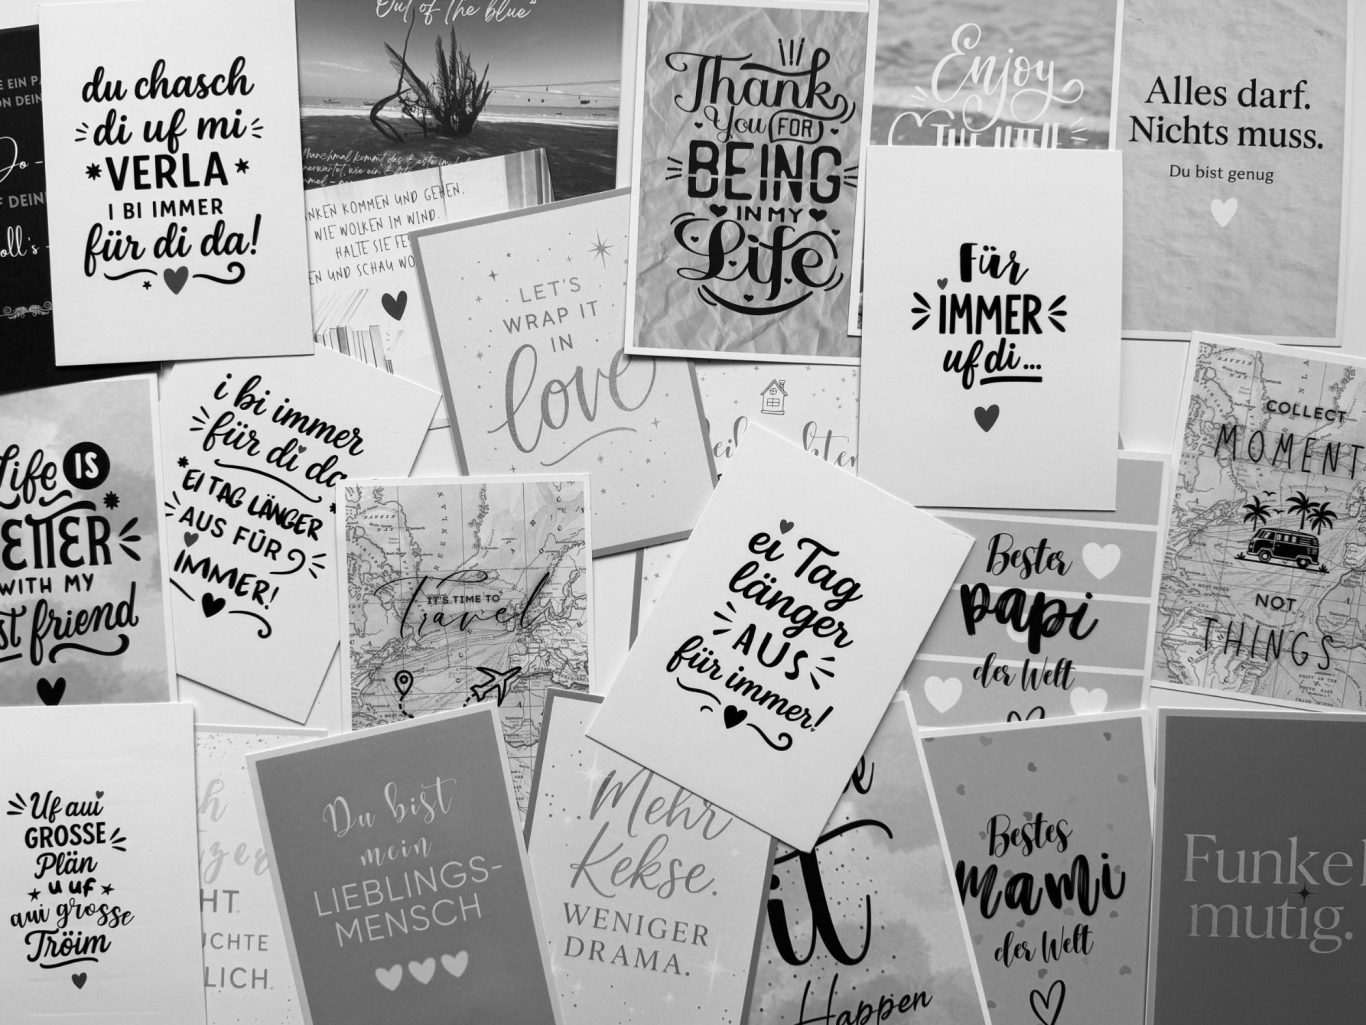 du chasch
di uf mi
VERLA
I BI IMMER
für di da!
Out of the blue"
Manchmal kommt das Beste
KOMMEN UND GEHEN.
WIE WOLKEN IM WIND.
HALTE SIE
UND SCHAU
LET'S
WRAP IT
IN
love
Thank
You FOR
BEING
IN MY
Life
Enjoy
THE LITTLE
Alles darf.
Nichts muss.
Du bist genug
Für
IMMER
uf di...
Life IS
WITH MY
friend
i bi immer
für di da
EI TAG LÄNGER
AUS FÜR
IMMER!
IT'S TIME TO
Travel
ei Tag
länger
AUS
für immer!
Bester
papi
der Welt
COLLECT
MOMENT
NOT
THINGS
Uf aui
GROSSE
Plän
u uf
aui grosse
Tröim
Du bist
mein
LIEBLINGS-
MENSCH
Mehr
Kekse.
WENIGER
DRAMA.
Happen
Bestes
mami
der Welt
Funkel
mutig.